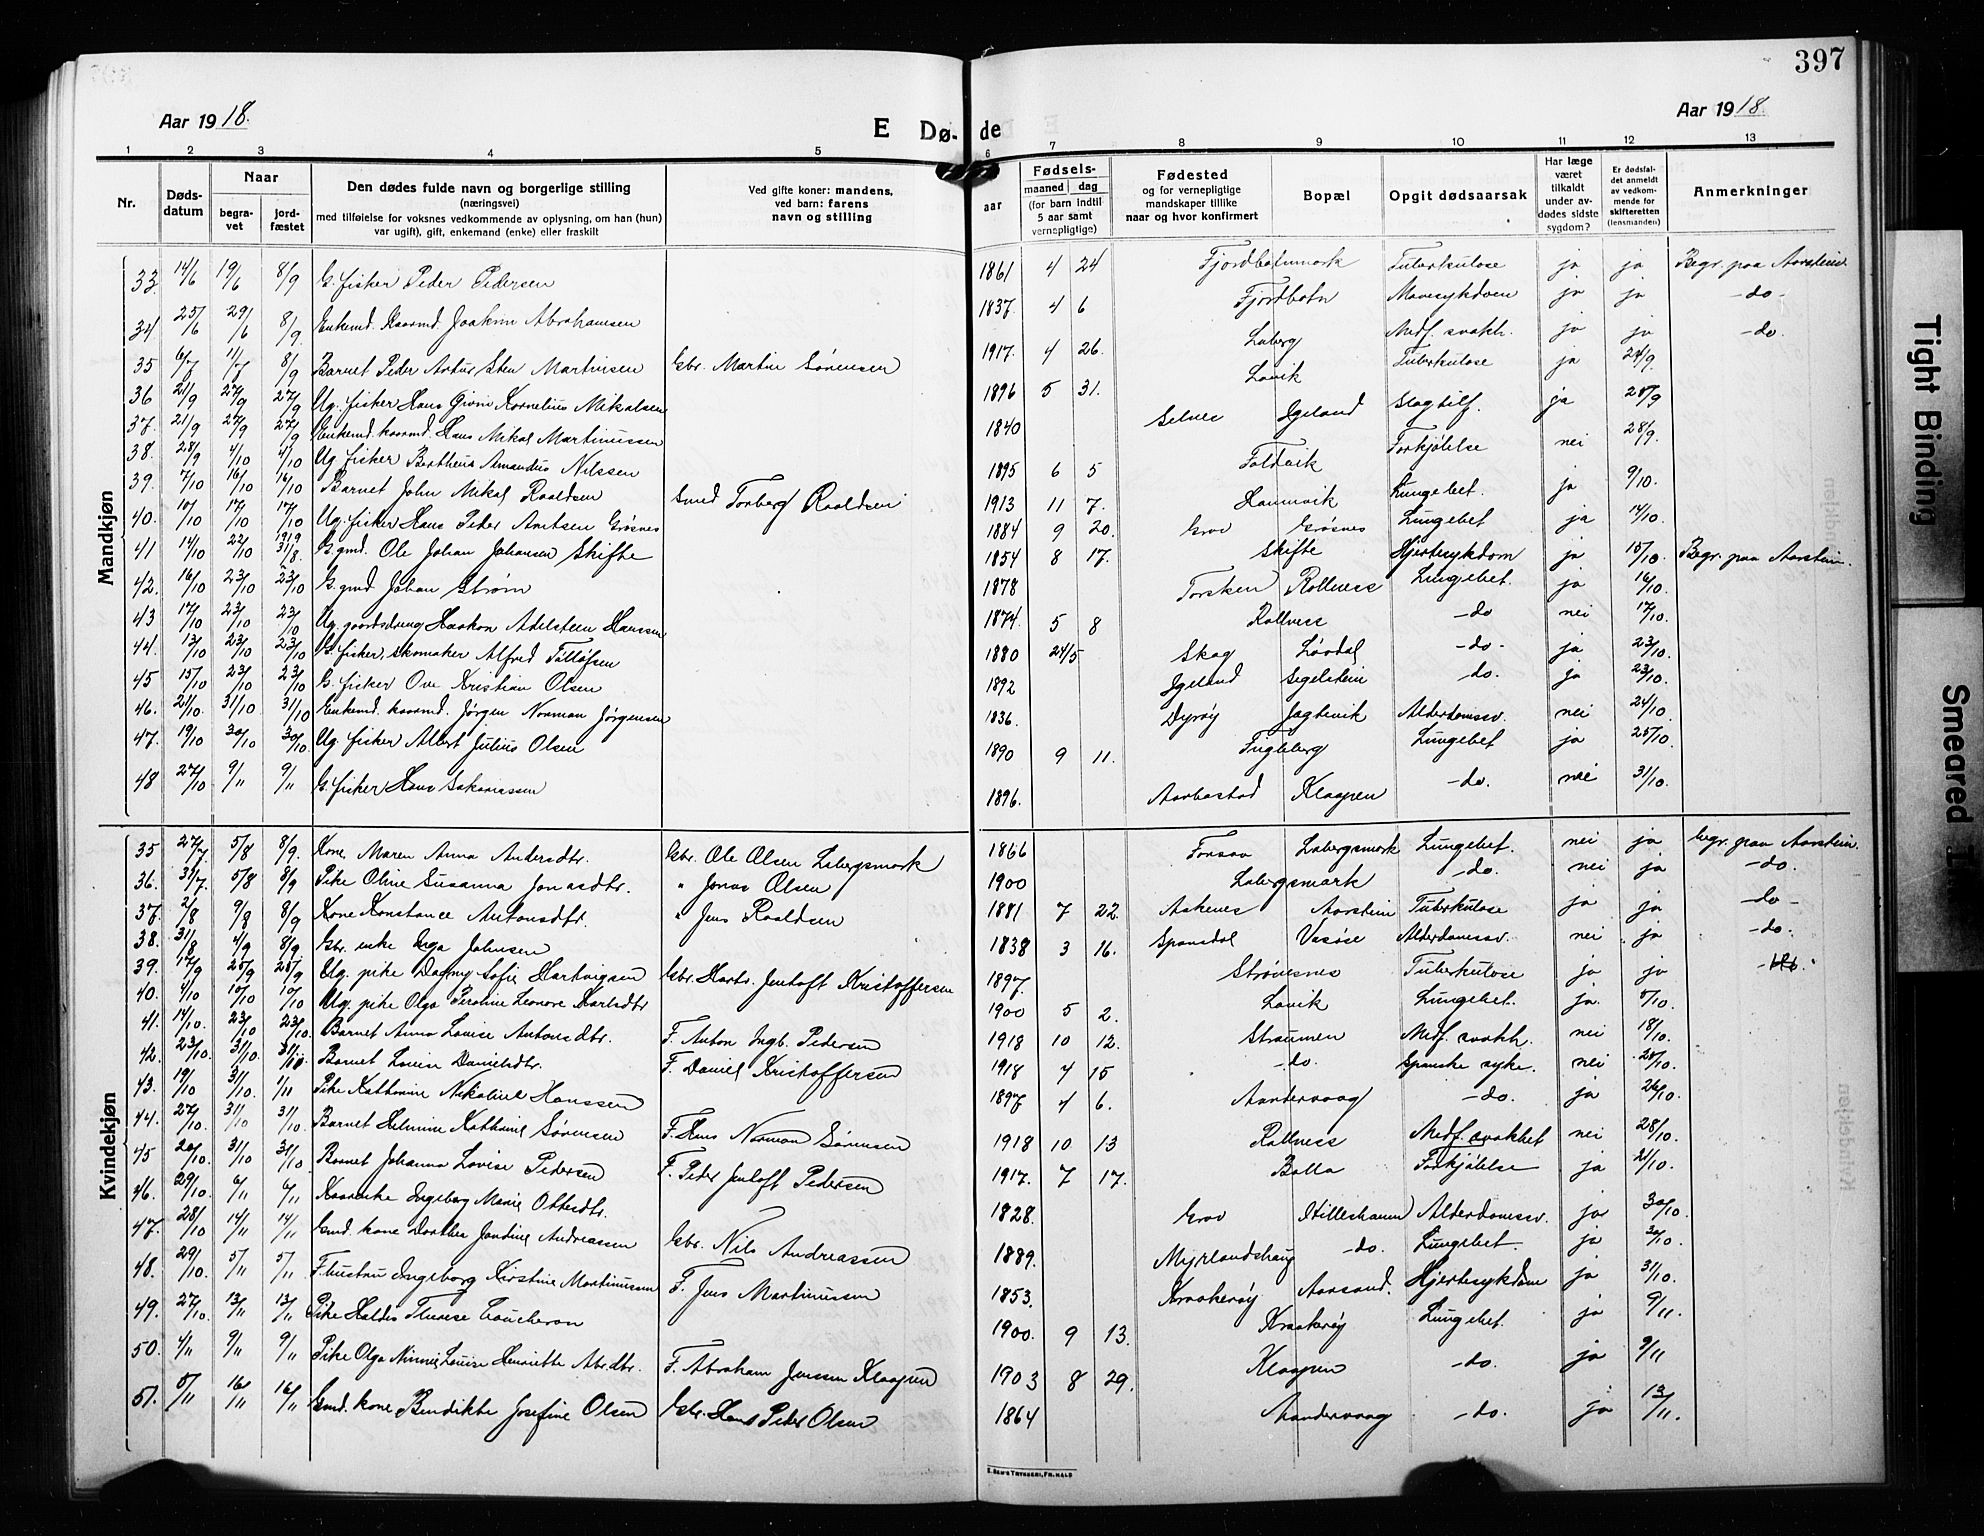 397
Aar 1918.
E Dø-
de
Aar 1918.
1 2 3 4 5 6 7 8 9 10 11 12 13
Nr.
Døds-
datum
Naar
begra-
vet
jord-
fæstet
Den dødes fulde navn og borgerlige stilling
(næringsvei)
med tilføielse for voksnes vedkommende av oplysning, om han (hun)
var ugift), gift, enkemand (enke) eller fraskilt
Ved gifte koner: mandens,
ved barn: farens
navn og stilling
Fødsels-
aar
maaned dag
(for barn indtil
5 aar samt
vernepligtige)
Fødested
og for vernepligtige
mandskaper tillike
naar og hvor konfirmert
Bopæl
Opgit dødsaarsak
Har læge
været
tilkaldt
under av-
dødes sidste
sygdom?
Er dødsfal-
det anmeldt
av vedkom-
mende for
skifteretten
(lensmanden)
Anmerkninger
Mandkjøn
33. 14/6 19/6 8/9 G. fisker Peder Pedersen 1861 4 24 Fjordbotnmark Tuberkulose ja ja Begr. paa Aarstein
34. 25/6 29/6 8/9 Enkemd. Kaarmd. Joakim Abrahamsen 1837 4 6 Fjordbotn Mavesykdom ja ja -do-
35 6/7 11/7 8/9 Barnet Peder Artur Sten Martinsen Gbr. Martin Sørensen 1917. 4 26. Laberg Medf. svakh. ja ja -do.
36 21/9 27/9 27/9 Ug. fisker Hans Kornelius Mikalsen 1896 5 31. Lavik Tuberkulose ja 24/9.
37. 21/9 27/9 27/9 Enkemd. kaarmd. Hans Mikal Martinussen 1840 Selnes Igeland Slagtilf. ja 28/9
38. 28/9 4/10 4/10 Ug fisker Bertheus Amandus Nilssen 1895 6 5 Foldvik Forkjølelse nei 28/9.
39. 7/10 16/10 16/10 Barnet John Mikal Roaldsen Smed Torberg Roaldsen 1913 11 7. Hamnvik Lungebet. ja 9/10.
40. 10/10 17/10 17/10 Ug. fisker Hans Peder Arntsen Grøsnes 1884 9 20. Grov Grøsnes Lungebet ja 14/10.
41 14/10 22/10 1919 31/8 G. gmd. Ole Johan Johansen Skifte 1854 8 17. Skifte Hjertesykdom ja 15/10. Begr. paa Aarstein.
42. 16/10 23/10 23/10 G. gmd Johan Strøm 1878 Torsken Rollnes Lungebet. ja 16/10.
43 17/10 23/10 23/10 Ug. gaardsdreng Haakon Adelsteen Hanssen 1874. 5 8 Rollnes -do nei 17/10.
44. 13/10 23/10 23/10 G. fisker, skomaker Alfred Tolløfsen 1880 24/5 Skog Løvdal -do- ja 23/10.
45 15/10 23/10 23/10 G. fisker Ove Kristian Olsen 1892 Igeland Segelstein -do. ja 23/10.
46. 21/10. 31/10 31/10 Enkemd. kaarmd. Jørgen Norman Jørgensen 1836. Dyrøy Jagtevik Alderdomssv. nei 24/10
47. 19/10 30/10 30/10. Ug. fisker Albert Julius Olsen 1890 9 11. Fugleberg Lungebet ja 25/10.
48 27/10 9/11 9/11 G. fisker Hans Sakariassen 1896. Aarbostad Klaapen -do. nei 31/10.
Kvindekjøn
35 27/7. 5/8 8/9. Kone Maren Anna Andersdtr. Gbr. Ole Olsen Labergsmark 1866 Forsaa Labergsmark Lungebet. nei ja begr. paa Aarstein.
36. 31/7. 5/8 8/9 Pike Oline Susanna Jonasdtr. " Jonas Olsen 1900 Labergsmark -do. nei ja -do-
37. 2/8 9/8 8/9 Kone Konstance Antonsdtr. " Jens Roaldsen 1881 7 22. Aakenes Aarstein Tuberkulose ja ja -do-
38. 31/8 4/9 8/9 Gbr. enke Inga Johnsen 1838 3 16. Spansdal Vasøse Alderdomssv. nei ja -do.
39. 17/9 25/9 25/9 Ug. pike Dagny Sofie Hartvigsen Gbr. Hartv. Jentoft Kristoffersen 1897 Strømsnes Tuberkulose ja ja
40. 4/10 10/10 10/10 Ug. pike Olga Peroline Leonore Karlsdtr 1900 5 2. Lavik Lungebet. ja. 5/10.
41. 14/10. 23/10 23/10. Barnet Anna Lovise Antonsdtr. F. Anton Ingb. Pedersen 1918 10 12. Straumen Medf. svakh. nei 18/10.
42. 23/10. 31/10. 31/10 Barnet Lovise Danielsdtr. F. Daniel Kristoffersen 1918 4 15 -do. Spanske syke. nei 25/10.
43. 19/10 31/10. 1/11 Pike Kathrine Nikoline Hanssen 1897 4 6. Aandervaag -do. ja 26/10.
44. 27/10. 31/10 31/10. Barnet Helmine Kathrine Sørensen F. Hans Norman Sørensen 1918 10 13 Rollnes Medf. svakhet nei 28/10.
45 20/10. 31/10 31/10. Barnet Johanna Lovise Pedersen F. Peder Jentoft Pedersen 1917. 7 17. Bolla Forkjølelse ja 21/10.
46. 29/10. 6/11 6/11 Kaarenke Ingeborg Marie Ottesdtr. 1828. Grov Stilleshamn Alderdomssv. ja 30/10.
47. 28/10 14/11 14/11 Gmd. kone Dorthea Jondine Andreassen Gbr. Nils Andreassen 1889. Myrlandshaug -do. Lungebet. ja 30/10.
48. 29/10. 5/11 5/11 F. hustru Ingeborg Kirstine Martinussen F. Jens Martinussen 1853. Kraakerøy Aarsand. Hjertesykdom ja 31/10.
49. 27/10. 13/11 13/11 Pike Haldis Therese Coucheron 1900. 9 13. Kraakerøy Lungebet. ja 9/11.
50. 4/11 9/11 9/11 Pike Olga Minnie Louise Henriette Abr.dtr. F. Abraham Jenssen Klaapen 1903 8 29. Klaapen -do. ja 9/11
51. 5/11 16/11 16/11 Gmd. kone Bendikte Josefine Olsen Gbr. Hans Peder Olsen 1864 Aandervaag -do. ja 13/11.
E. SEM'S TRYKKERI, FR.HALD
Tight Binding
Smeared